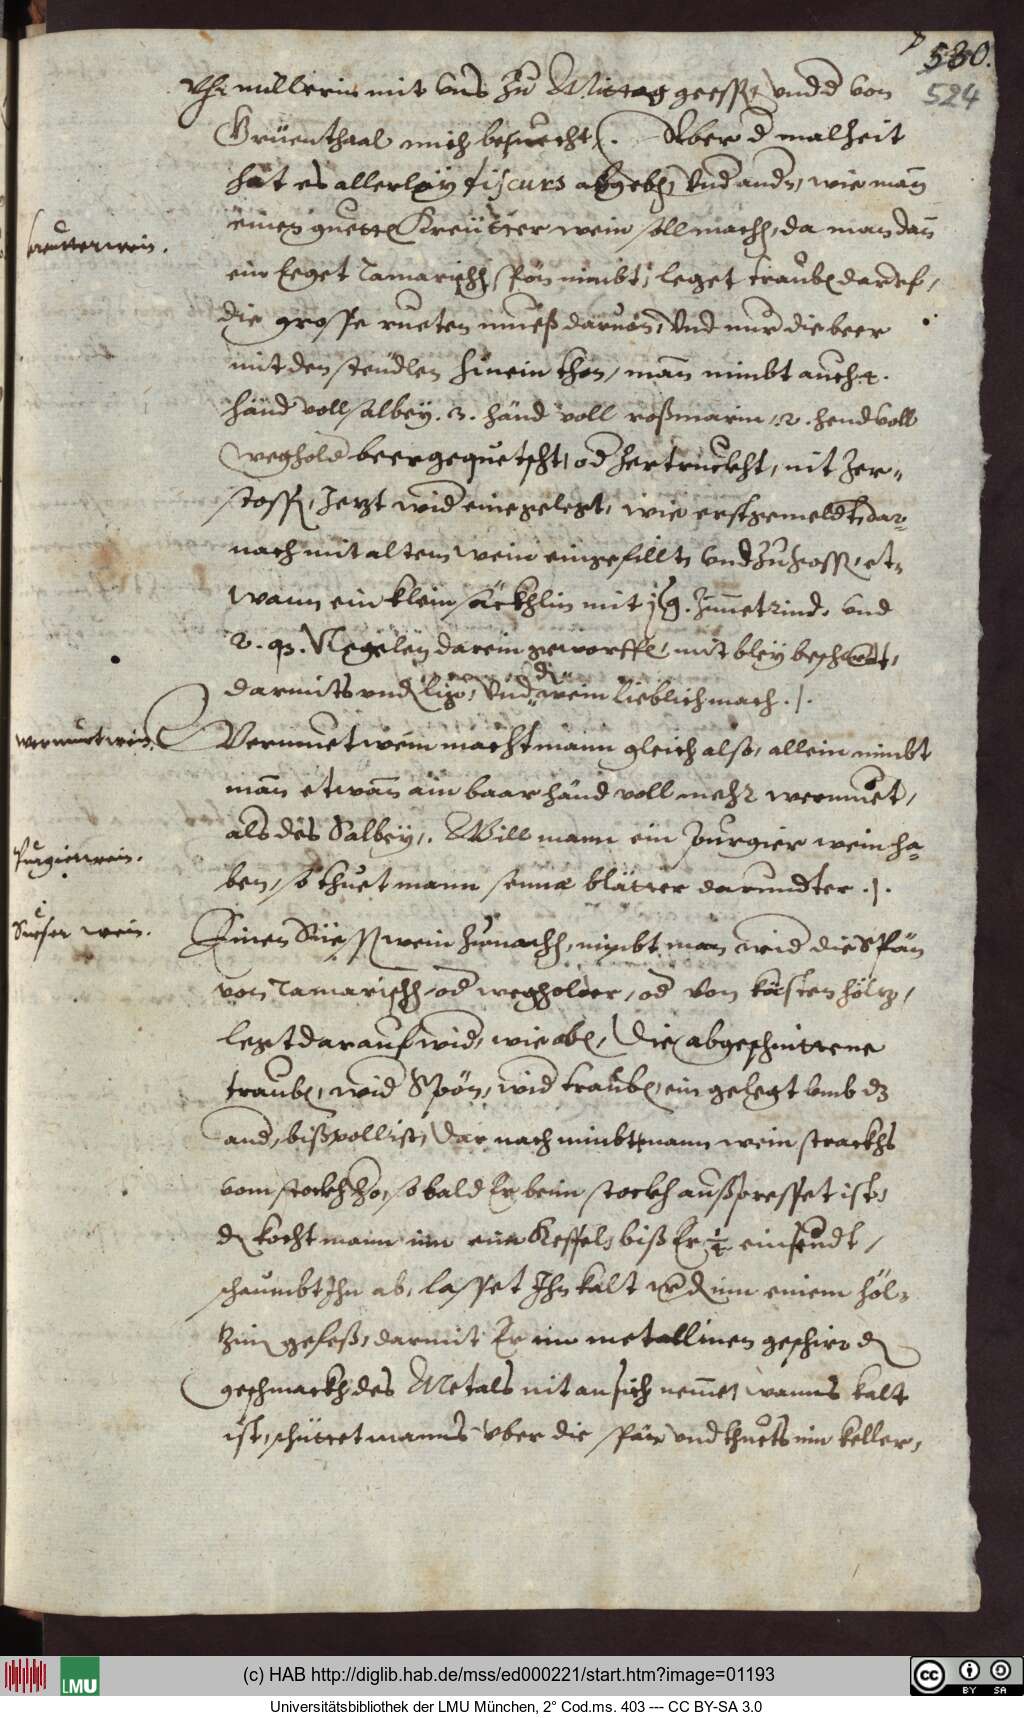 530.
524
müllerin mit vns zu Mittag geessen vnnd d von
Grüenthaal mich besuecht. Aber d malheit
hat es allerlay discurs abgeben, Vnd and, wie man
einen guetten Kreütter wein soll machen, da man dan
kreutterwein.
ein leget Tamarischen spön nimbt, leget trauben darauf,
die grosse rueten mueß daruon, Vnd nur die beer
mit den steudlen hinein thon, man nimbt auch 4.
händ voll salbey. 3. händ voll roßmarin, 2. hend voll
weghold beer gequetscht, od zertruckht, nit zer-
stossen, Jezt wid eingelegt, wie erstgemeldt, dar-
nach mit altem wein eingefillt, Vnd zu et-
wann ein klein säckhlin mit Zimmetrind, vnd
2. Negelen darein geworffen, mit bley beschwert,
darmits vndersich Vnd den wein lieblich mach.
wermuetwein.
Vermuetwein macht mann gleich also, allein nimbt
man etwan ain baar händ voll mehr wermuet,
als des Salbey. Will mann ein purgier wein ha-
purgierwein.
ben, so thuet mann sennæ blätter darundter.
Süeser wein.
Einen Süessen wein zumachen, nimbt man wid die Spän
von Tamarischen, od wegholder, od von kösten höltz,
legt darauf wid, wie oben, Die abgeschnittene
trauben, wid Spön, wid trauben, ein gelegt vmb dz
and, biß voll ist, Dar nach nimbt mann wein strackhs
vom stockh so bald Er beim stockh außpresset ist,
den kocht mann inn eim Kessel, biß Er ½ einseudt,
schaumbt Ihn ab, lasset Ihn kalt werden inn einem höl-
tzin gefeß, darmit Er im metallinen geschirr den
geschmackh des Metals nit an sich neme, wanns kalt
ist, schüttet manns vber die spän vnd thuets inn keller,
(c) HAB http://diglib.hab.de/mss/ed000221/start.htm?image=01193
LMU
cc BY SA
Universitätsbibliothek der LMU München, 2° Cod.ms. 403 --- CC BY-SA 3.0